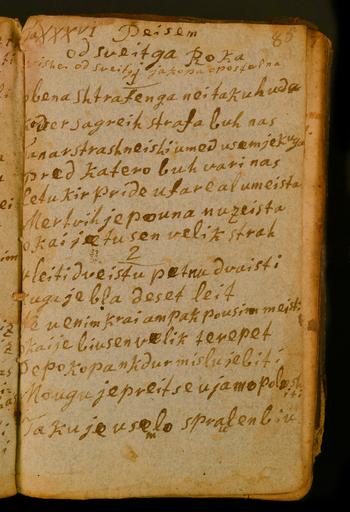 LXXXVI Peisem 85
od sveitga Roka
vishei od sveitej jakopa opostelna
1
obena shtrafenga nei taku huda
koder sagreih strafa buh nas
sanar strashneishi umed usem je kuga
pred katero buh vari nas
letu kir pride ufare al umeista
Mertvih je pouna nu zeista
okai je tu sen velik strah
2
vleiti dveistu petnu dvaisti
kuga je bla deset leit
ne u enim krai ampak pousim meisti
okai je biu sen velik terepet
Pepokopan kdur mislu je biti
Mougu je preit se u jamo polositi
Taku je uselo spralen biu